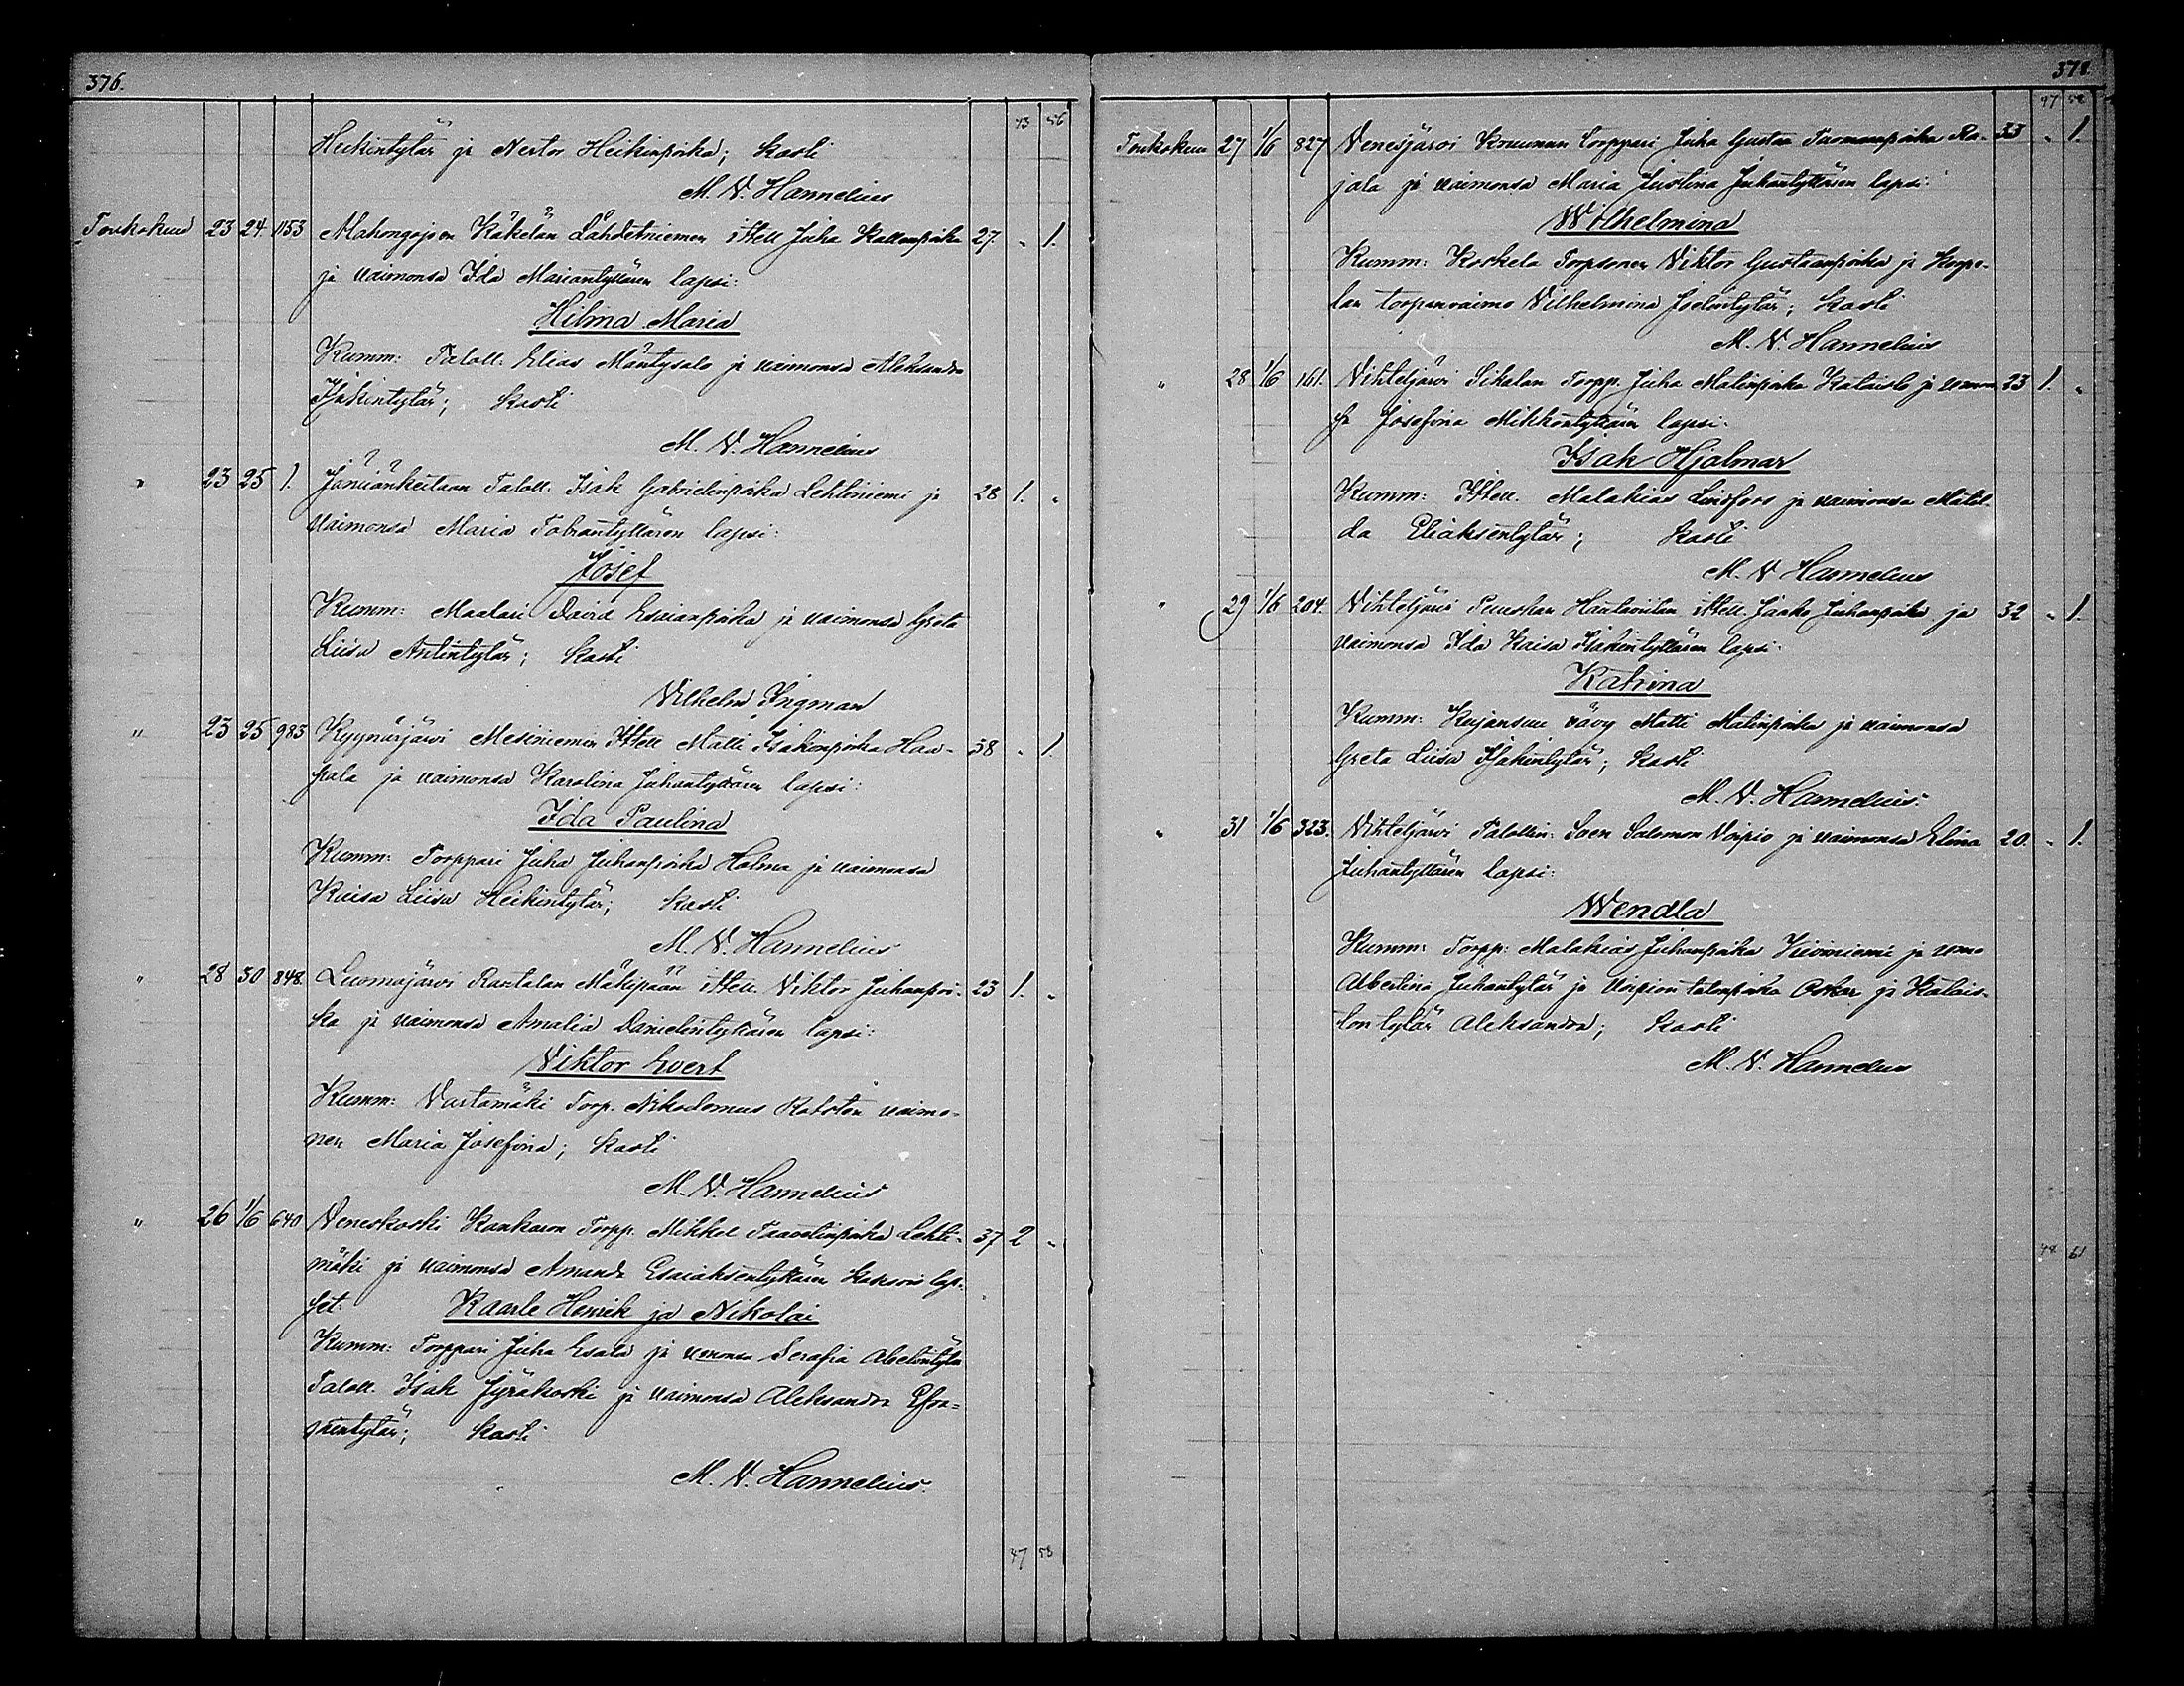 376.
43 56
Heikintytär ja Nestor Heikinpoika; Kasti
M. V. Hannelius
Toukokuu 23 24. 1153 Mahongojoen Käkelän Lähdetniemen ittell Juha Kallenpoika 27. „ 1.
ja vaimonsa Ida Mariantyttären lapsi:
Hilma Maria
Kumm: Taloll. Elias Mäntysalo ja vaimonsa Aleksandra
Isakintytär; Kasti
M. V. Hannelius
„ 23 25 1. Jämiänkeitaan Taloll. Isak Gabrielinpoika Lehtiniemi ja 28 1. „
vaimonsa Maria tyttären lapsi:
Josef
Kumm: Maalari David Esaianpoika ja vaimonsa Greta
Liisa Antintytär; Kasti
Vilhelm Ingman
„ 23 25 983 Kyynärjärvi Mesiniemen Ittell Matti Isakinpoika Haa- 38 „ 1.
pala ja vaimonsa Karolina Juhantyttären lapsi:
Ida Paulina
Kumm: Torppari Juha Juhanpoika Halma ja vaimonsa
Kaisa Liisa Heikintytär; Kasti
M. V. Hannelius
„ 28 30 848. Luomajärvi Rantalan Mäkipään ittell. Viktor Juhanpoi- 23 1. „
ka ja vaimonsa Amalia Danielintyttären lapsi:
Viktor Evert
Kumm: Vartamäki Torp. Nikodemus vaimo-
nen Maria Josefina; Kasti
M. V. Hannelius
„ 26 1/6 640 Veneskoski Kankaron Torpp. Mikkel Taavetinpoika Lehti- 37 2 „
mäki ja vaimonsa Amanda Esaiaksentyttären kaksois lap-
set. Kaarle Henrik ja Nikolai
Kumm: Torppari Juha Esala ja vmonsa Serafia Abelintytär
Taloll. Isak Jyräkoski ja vaimonsa Aleksandra Efra-
imintytär; Kasti
M. V. Hannelius.
47 58
378
47 58
Toukokuu 27 1/6 827 Venesjärvi Kruunun Torppari Juha Gustaa Tuomaanpoika Ra- 33 „ 1.
jala ja vaimonsa Maria Justina Juhantyttären lapsi:
Wilhelmina
Kumm: Koskela Torpsonen Viktor Gustaanpoika ja Korpe-
lan torpanvaimo Vilhelmina Joelintytär; Kasti
M. V. Hannelius
„ 28 1/6 161. Vihteljärvi Sikalan Torpp. Juha Matinpoika Kalaisto ja vmon 23 1. „
sa Josefina Mikkontyttären lapsi:
Isak Hjalmar
Kumm: Ittell. Malakias Lindfors ja vaimonsa Matil-
da Eliaksentytär; Kasti
M. V. Hannelius
„ 29 1/6 204. Vihteljärvi Puuskan ittell. Jaako Juhanpoika ja 32 „ 1.
vaimonsa Ida Kaisa Isakintyttären lapsi:
Katrina
Kumm: Kujansuu vävy Matti Matinpoika ja vaimonsa
Greta Liisa Isakintytär; Kasti
M. V. Hannelius.
„ 31 1/6 323. Vihteljärvi Talollin: Soen Salomon Voipio ja vaimonsa Elina 20. „ 1.
Juhantyttären lapsi:
Wendla
Kumm: Torpp: Malakias Juhanpoika Kiviniemi ja vmo
Albertina Juhantytär ja Voipion talonpoika Oskar ja Kalais-
ton tytär Aleksandra; Kasti
M. V. Hannelius
48 61